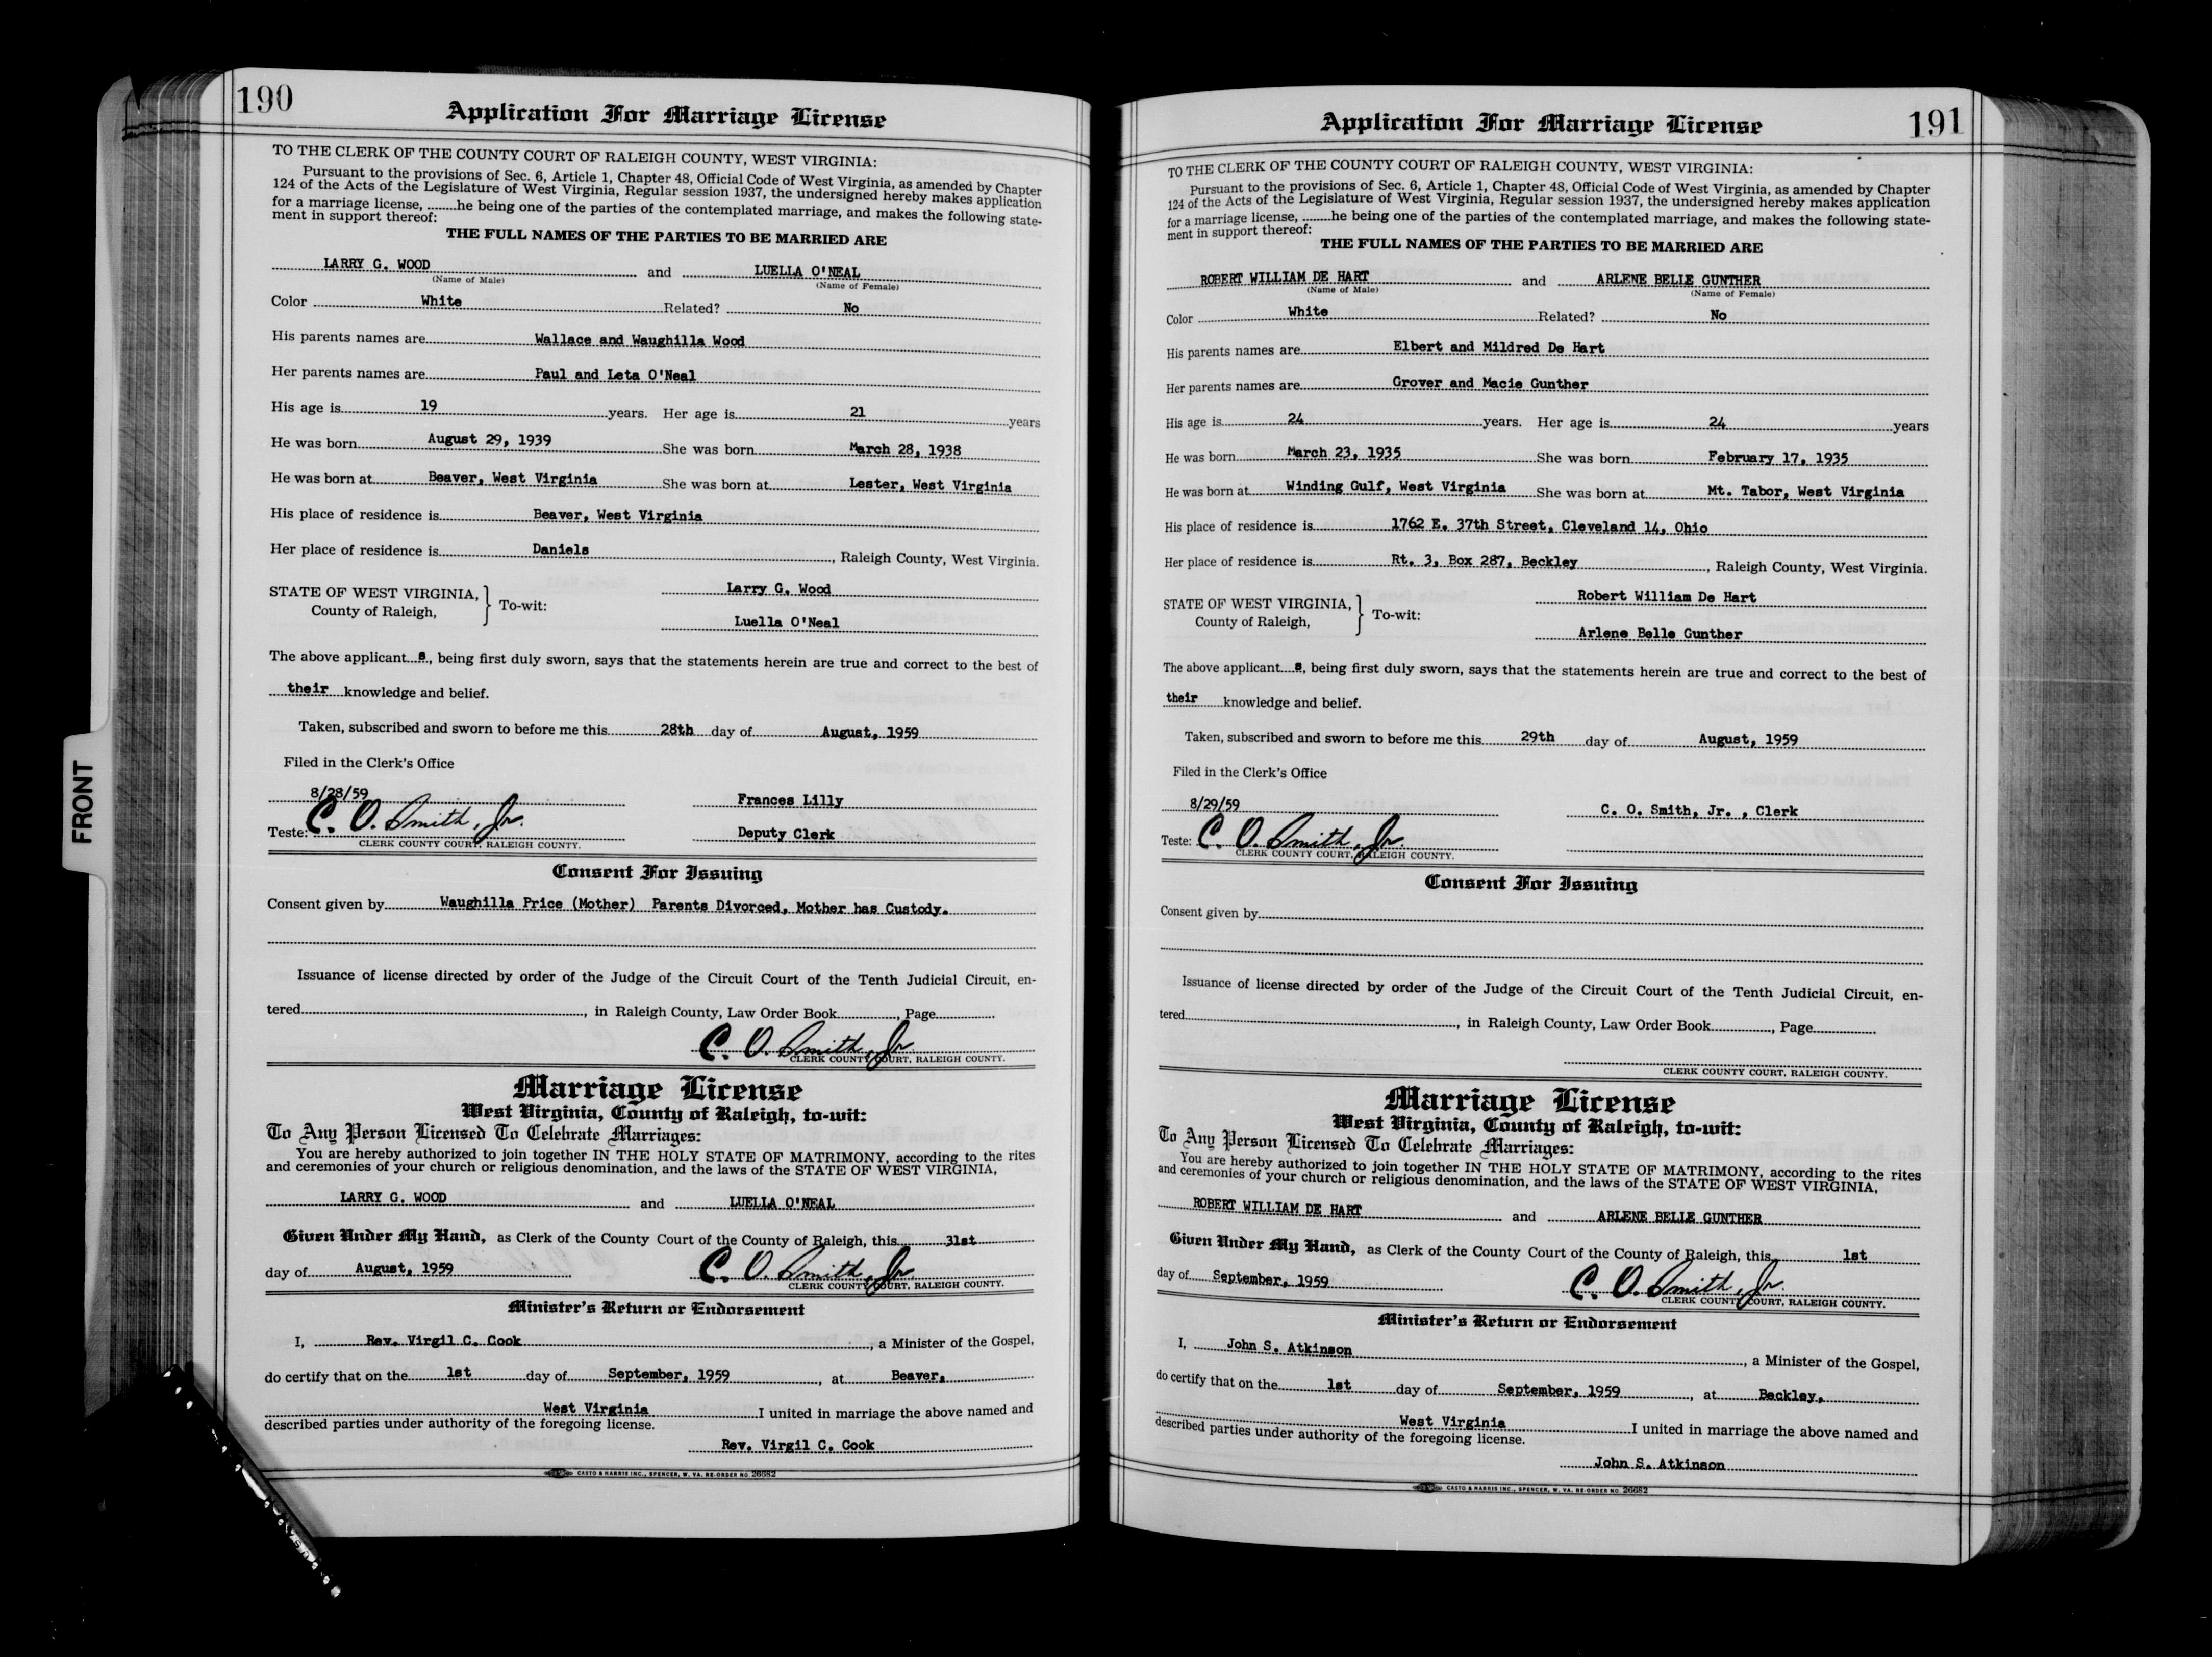 FRONT
190
Application For Marriage License
TO THE CLERK OF THE COUNTY COURT OF RALEIGH COUNTY, WEST VIRGINIA:
Pursuant to the provisions of Sec. 6, Article 1, Chapter 48, Official Code of West Virginia, as amended by Chapter
124 of the Acts of the Legislature of West Virginia, Regular session 1937, the undersigned hereby makes application
for a marriage license, ........he being one of the parties of the contemplated marriage, and makes the following state-
ment in support thereof:
THE FULL NAMES OF THE PARTIES TO BE MARRIED ARE
LARRY G. WOOD and LUELLA O'NEAL
(Name of Male) (Name of Female)
Color White Related? No
His parents names are Wallace and Waughilla Wood
Her parents names are Paul and Leta O'Neal
His age is 19 years. Her age is 21 years
He was born August 29, 1939 She was born March 28, 1938
He was born at Beaver, West Virginia She was born at Lester, West Virginia
His place of residence is Beaver, West Virginia
Her place of residence is Daniels, Raleigh County, West Virginia.
STATE OF WEST VIRGINIA, County of Raleigh, } To-wit:
Larry G. Wood
Luella O'Neal
The above applicant s, being first duly sworn, says that the statements herein are true and correct to the best of
their knowledge and belief.
Taken, subscribed and sworn to before me this 28th day of August, 1959
Filed in the Clerk's Office
8/28/59 Frances Lilly
Teste: C. O. Smith, Jr. Deputy Clerk
CLERK COUNTY COURT, RALEIGH COUNTY.
Consent For Issuing
Consent given by Waughilla Price (Mother) Parents Divorced, Mother has Custody.
Issuance of license directed by order of the Judge of the Circuit Court of the Tenth Judicial Circuit, en-
tered, in Raleigh County, Law Order Book, Page
C. O. Smith, Jr.
CLERK COUNTY COURT, RALEIGH COUNTY.
Marriage License
West Virginia, County of Raleigh, to-wit:
To Any Person Licensed To Celebrate Marriages:
You are hereby authorized to join together IN THE HOLY STATE OF MATRIMONY, according to the rites
and ceremonies of your church or religious denomination, and the laws of the STATE OF WEST VIRGINIA,
LARRY G. WOOD and LUELLA O'NEAL
Given Under My Hand, as Clerk of the County Court of the County of Raleigh, this 31st
day of August, 1959 C. O. Smith, Jr.
CLERK COUNTY COURT, RALEIGH COUNTY.
Minister's Return or Endorsement
I, Rev. Virgil C. Cook, a Minister of the Gospel,
do certify that on the 1st day of September, 1959, at Beaver,
West Virginia I united in marriage the above named and
described parties under authority of the foregoing license.
Rev. Virgil C. Cook
CASTO & HARRIS INC., SPENCER, W. VA. RE-ORDER NO. 26682
191
Application For Marriage License
TO THE CLERK OF THE COUNTY COURT OF RALEIGH COUNTY, WEST VIRGINIA:
Pursuant to the provisions of Sec. 6, Article 1, Chapter 48, Official Code of West Virginia, as amended by Chapter
124 of the Acts of the Legislature of West Virginia, Regular session 1937, the undersigned hereby makes application
for a marriage license, ........he being one of the parties of the contemplated marriage, and makes the following state-
ment in support thereof:
THE FULL NAMES OF THE PARTIES TO BE MARRIED ARE
ROBERT WILLIAM DE HART and ARLENE BELLE GUNTHER
(Name of Male) (Name of Female)
Color White Related? No
His parents names are Elbert and Mildred De Hart
Her parents names are Grover and Macie Gunther
His age is 24 years. Her age is 24 years
He was born March 23, 1935 She was born February 17, 1935
He was born at Winding Gulf, West Virginia She was born at Mt. Tabor, West Virginia
His place of residence is 1762 E. 37th Street, Cleveland 14, Ohio
Her place of residence is Rt. 3, Box 287, Beckley, Raleigh County, West Virginia.
STATE OF WEST VIRGINIA, County of Raleigh, } To-wit:
Robert William De Hart
Arlene Belle Gunther
The above applicant s, being first duly sworn, says that the statements herein are true and correct to the best of
their knowledge and belief.
Taken, subscribed and sworn to before me this 29th day of August, 1959
Filed in the Clerk's Office
8/29/59 C. O. Smith, Jr. , Clerk
Teste: C. O. Smith, Jr.
CLERK COUNTY COURT, RALEIGH COUNTY.
Consent For Issuing
Consent given by
Issuance of license directed by order of the Judge of the Circuit Court of the Tenth Judicial Circuit, en-
tered, in Raleigh County, Law Order Book, Page
CLERK COUNTY COURT, RALEIGH COUNTY.
Marriage License
West Virginia, County of Raleigh, to-wit:
To Any Person Licensed To Celebrate Marriages:
You are hereby authorized to join together IN THE HOLY STATE OF MATRIMONY, according to the rites
and ceremonies of your church or religious denomination, and the laws of the STATE OF WEST VIRGINIA,
ROBERT WILLIAM DE HART and ARLENE BELLE GUNTHER
Given Under My Hand, as Clerk of the County Court of the County of Raleigh, this 1st
day of September, 1959 C. O. Smith, Jr.
CLERK COUNTY COURT, RALEIGH COUNTY.
Minister's Return or Endorsement
I, John S. Atkinson, a Minister of the Gospel,
do certify that on the 1st day of September, 1959, at Beckley,
West Virginia I united in marriage the above named and
described parties under authority of the foregoing license.
John S. Atkinson
CASTO & HARRIS INC., SPENCER, W. VA. RE-ORDER NO. 26682